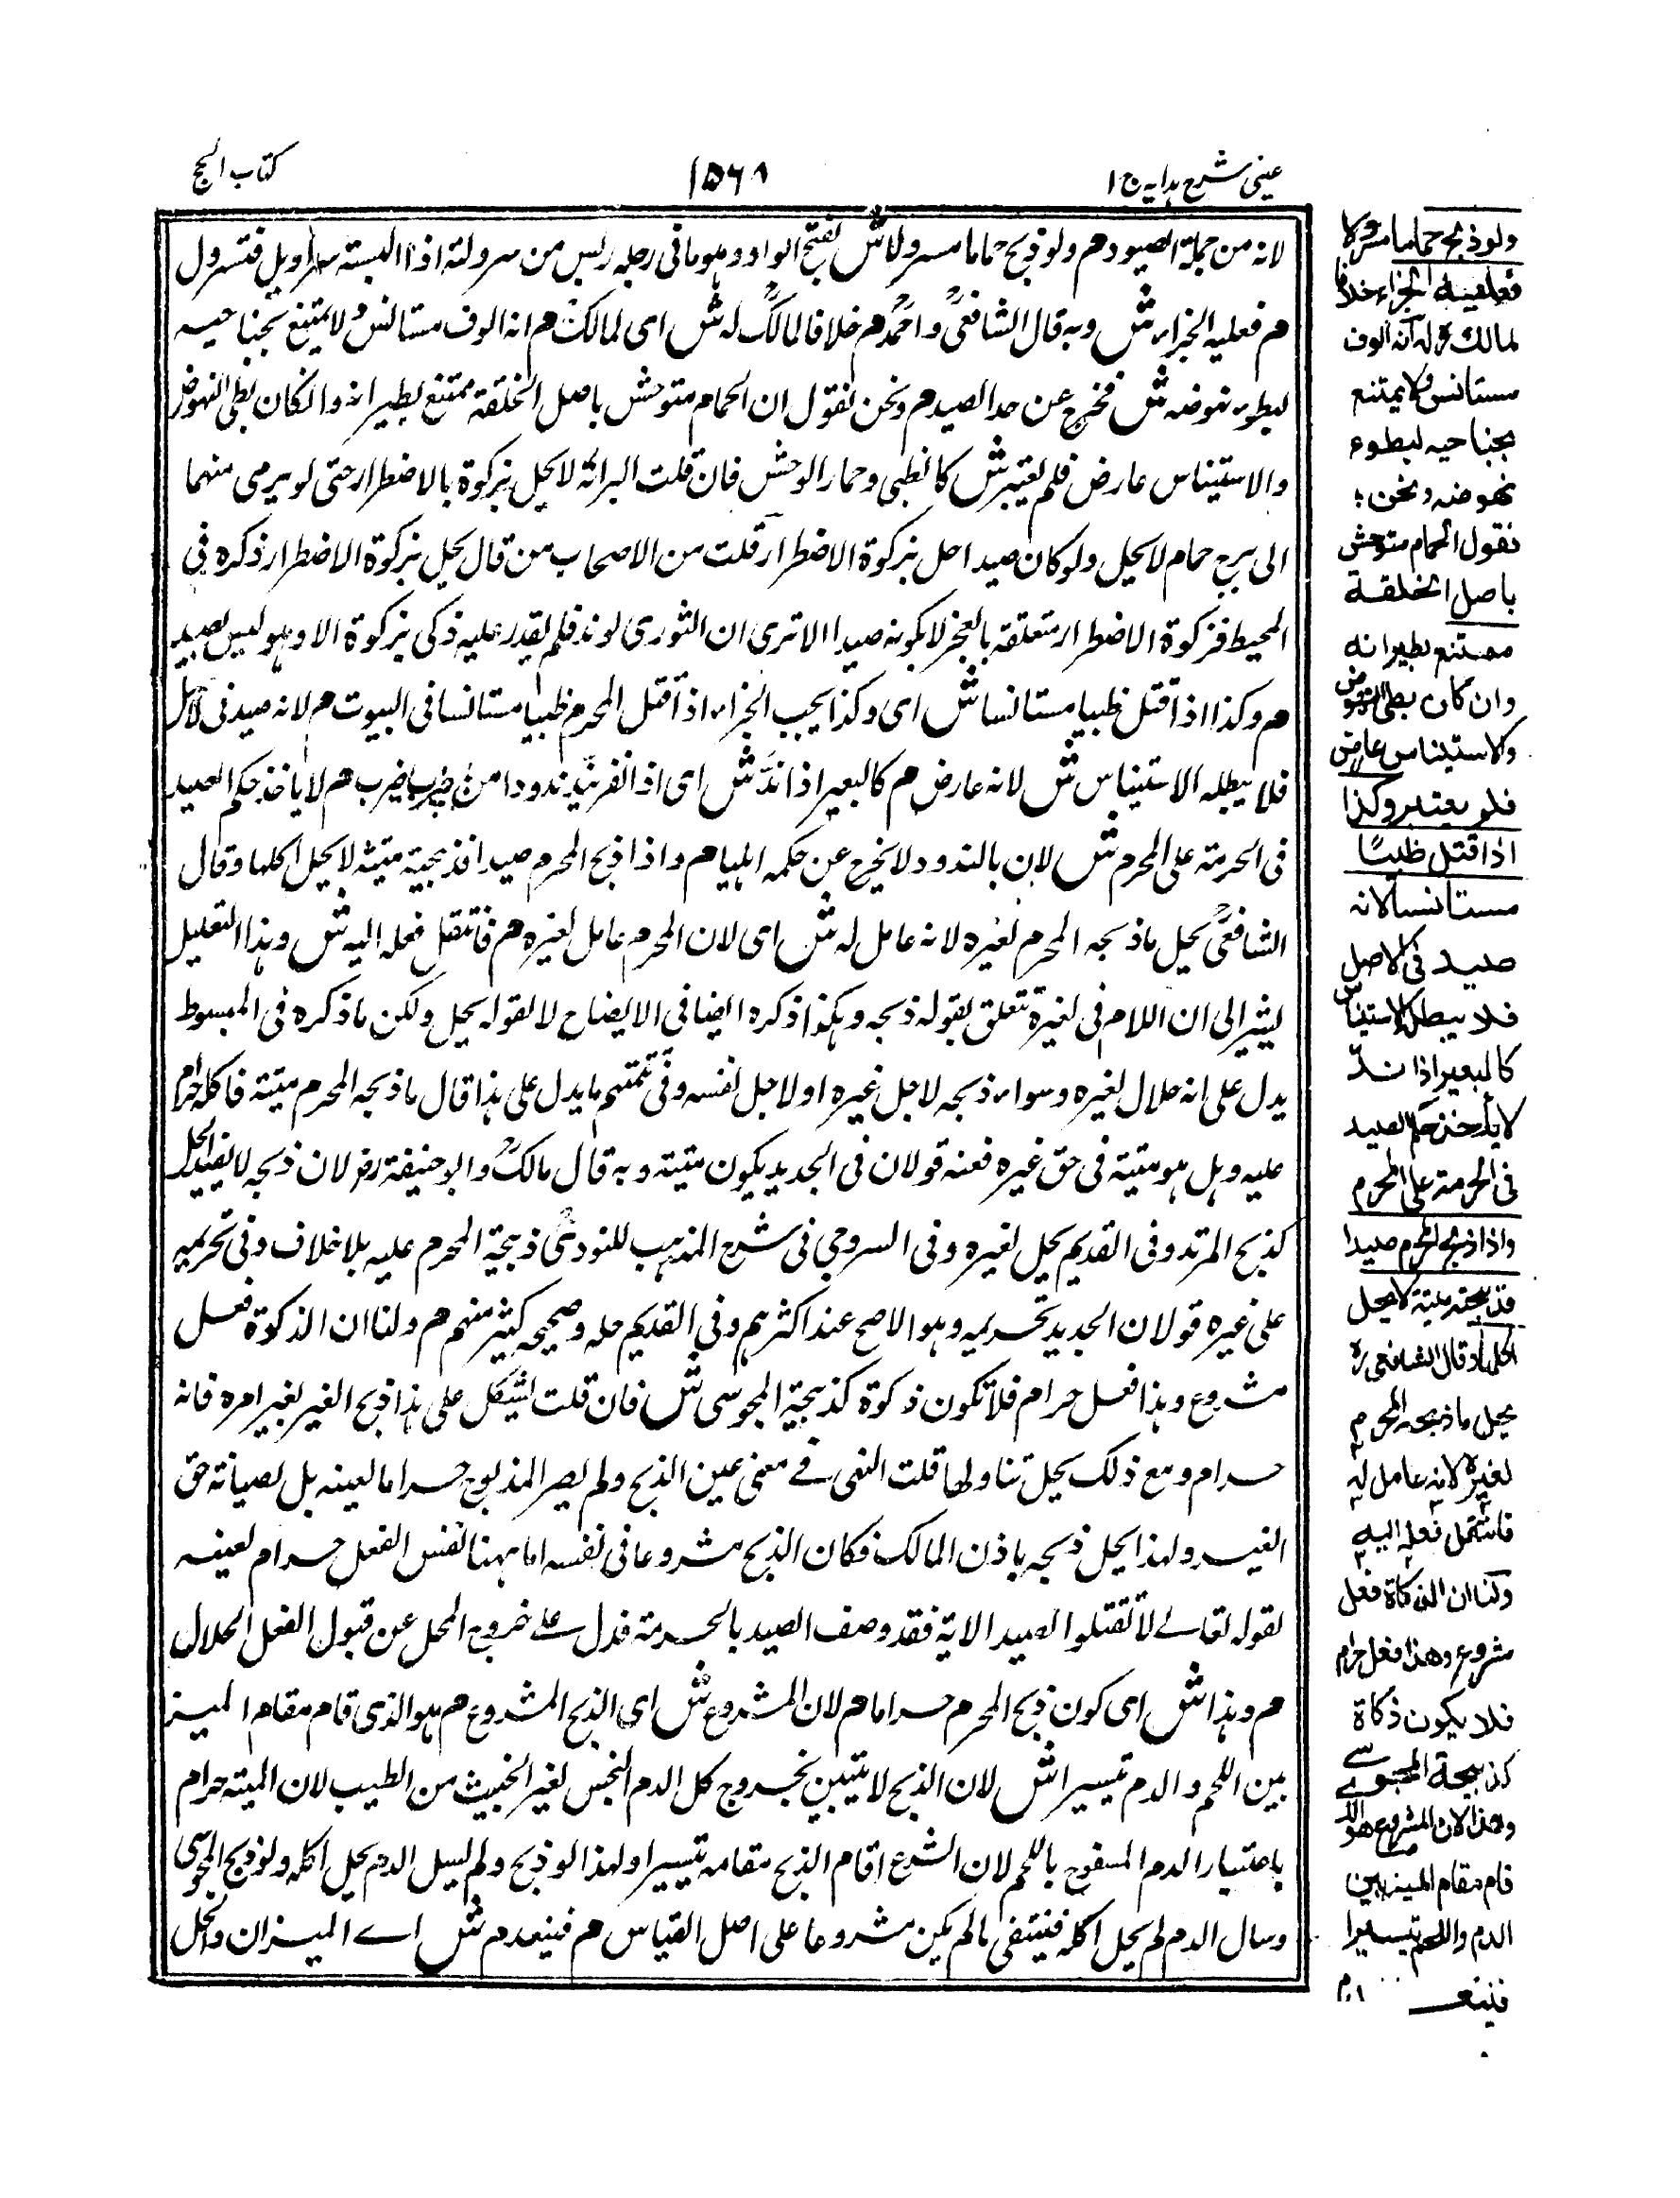 عینی شرح ہدایہ ج ۱
۱۵۶۸
کتاب الحج
لانه من جملة الصیود م ولو ذبح حماما مسرولا ش بفتح الواو وہو ما فی رجلہ ریش من سرولتہ اذا البستہ سراویل فتسرول
م فعلیہ الجزاء ش وبہ قال الشافعیؒ واحمدؒ م خلافا لمالکؒ لہ ش ای لمالکؒ م انہ الوف مستانس ولا یمتنع بجناحیہ
لبطوء نہوضہ ش فخرج عن حد الصید م ونحن نقول ان الحمام متوحش باصل الخلقة ممتنع بطیرانہ وانکان بطی النہوض
والاستیناس عارض فلم یعتبر ش کالظبی وحمار الوحش فان قلت البرائہ لا یحل بزکوة بالاضطرار حتی لو یرمی منہما
الی برج حمام لا یحل ولو کان صیدا حل بزکوة الاضطرار قلت من الاصحاب من قال یحل بزکوة الاضطرار ذکرہ فی
المحیط فزکوة الاضطرار متعلقہ بالعجز لا بکونہ صیدا الا تری ان الثوری لو ند فلم یقدر علیہ ذکی بزکوة الا وہو لیس بصید
م وکذا اذا قتل ظبیا مستانسا ش ای وکذا یجب الجزاء اذا قتل المحرم ظبیا مستانسا فی البیوت م لانہ صید فی الاصل
فلا یبطلہ الاستیناس ش لانہ عارض م کالبعیر اذا ندّ ش ای اذا نفر یند ندودا من ضرب یضرب م لا یاخذ حکم الصید
فی الحرمتہ علی المحرم ش لان بالندود لا یخرج عن حکمہ م واذا ذبح المحرم صیدا فذبیحتہ میتة لا یحل اکلہا وقال
الشافعیؒ یحل ما ذبحہ المحرم لغیرہ لانہ عامل لہ ش ای لان المحرم عامل لغیرہ م فانتقل فعلہ الیہ ش وہذا التعلیل
یشیر الی ان اللام فی لغیرة تتعلق بقولہ ذبحہ وہکذا ذکرہ ایضا فی الایضاح لا لقولہ یحل ولکن ما ذکرہ فی المبسوط
یدل علی انہ حلال لغیرہ وسواء ذبحہ لاجل غیرہ او لاجل نفسہ وفی تتمتہم ما یدل علی ہذا قال ما ذبحہ المحرم میتة فاکلہ حرام
علیہ وہل ہو میتة فی حق غیرہ فعنہ قولان فی الجدید یکون میتة وبہ قال مالکؒ وابو حنیفة رض لان ذبحہ لا یفید الحل
کذبح المرتد وفی القدیم یحل لغیرہ وفی السروجی فی شرح المذہب للنوویؒ ذبیحة المحرم علیہ بلا خلاف وفی تحریمہ
علی غیرہ قولان الجدید تحریمہ وہو الاصح عند اکثرہم وفی القدیم حلہ وصححہ کثیر منہم م ولنا ان الذکوة فعل
مشروع وہذا فعل حرام فلا تکون ذکوة کذبیحة المجوسی ش فان قلت یشکل علی ہذا ذبح الغیر لغیر امرہ فانہ
حرام ومع ذلک یحل تناولہا قلت النہی فے معنی عین الذبح ولم یصر المذبوح حراما لعینہ بل لصیانتہ حق
الغیر ولہذا یحل ذبحہ باذن المالک فکان الذبح مشروعا فی نفسہ اما ہہنا نفس الفعل حرام لعینہ
لقولہ تعالے لا تقتلوا الصید الایة فقد وصف الصید بالحرمتہ فدل علے خروج المحل عن قبول الفعل الحلال
م وہذا ش ای کون ذبح المحرم حراما م لان المشروع ش ای الذبح المشروع م ہو الذی قام مقام المیز
بین اللحم والدم تیسیرا ش لان الذبح لا یتبین بخروج کل الدم النجس لغیر الخبیث من الطیب لان المیتہ حرام
باعتبار الدم المسفوح باللحم لان الشرع اقام الذبح مقامہ تیسیرا ولہذا لو ذبح ولم یسل الدم یحل اکلہ ولو ذبح المجوسی
وسال الدم لم یحل اکلہ فینتفی مالم یکن مشروعا علی اصل القیاس م فینعدم ش اے المیزان والحل
ولو ذبح حماما مسرولا
فعلیه الجزاء خلافا
لمالك رح له انه الوف
مستانس ولا یمتنع
بجناحیه لبطوء
نهوضه ونحن
نقول الحمام متوحش
باصل الخلقة
ممتنع بطیرانه
وان كان بطی النهوض
والاستیناس عارض
فلم یعتبر وکذا
اذا قتل ظبیًا
مستانسا لانه
صید فی الاصل
فلا یبطله الاستیناس
کالبعیر اذا ندّ
لا یأخذ حکم الصید
فی الحرمة علی المحرم
واذا ذبح المحرم صیدا
فذبیحته میتة لا یحل
اکلها وقال الشافعی رح
یحل ما ذبحه المحرم
لغیره لانه عامل له
فانتقل فعله الیه
ولنا ان الذکاة فعل
مشروع وهذا فعل حرام
فلا یکون ذکاة
کذبیحة المجوسے
وهذا لان المشروع هو الذی
قام مقام المیز بین
الدم واللحم تیسیرا
فینعدم